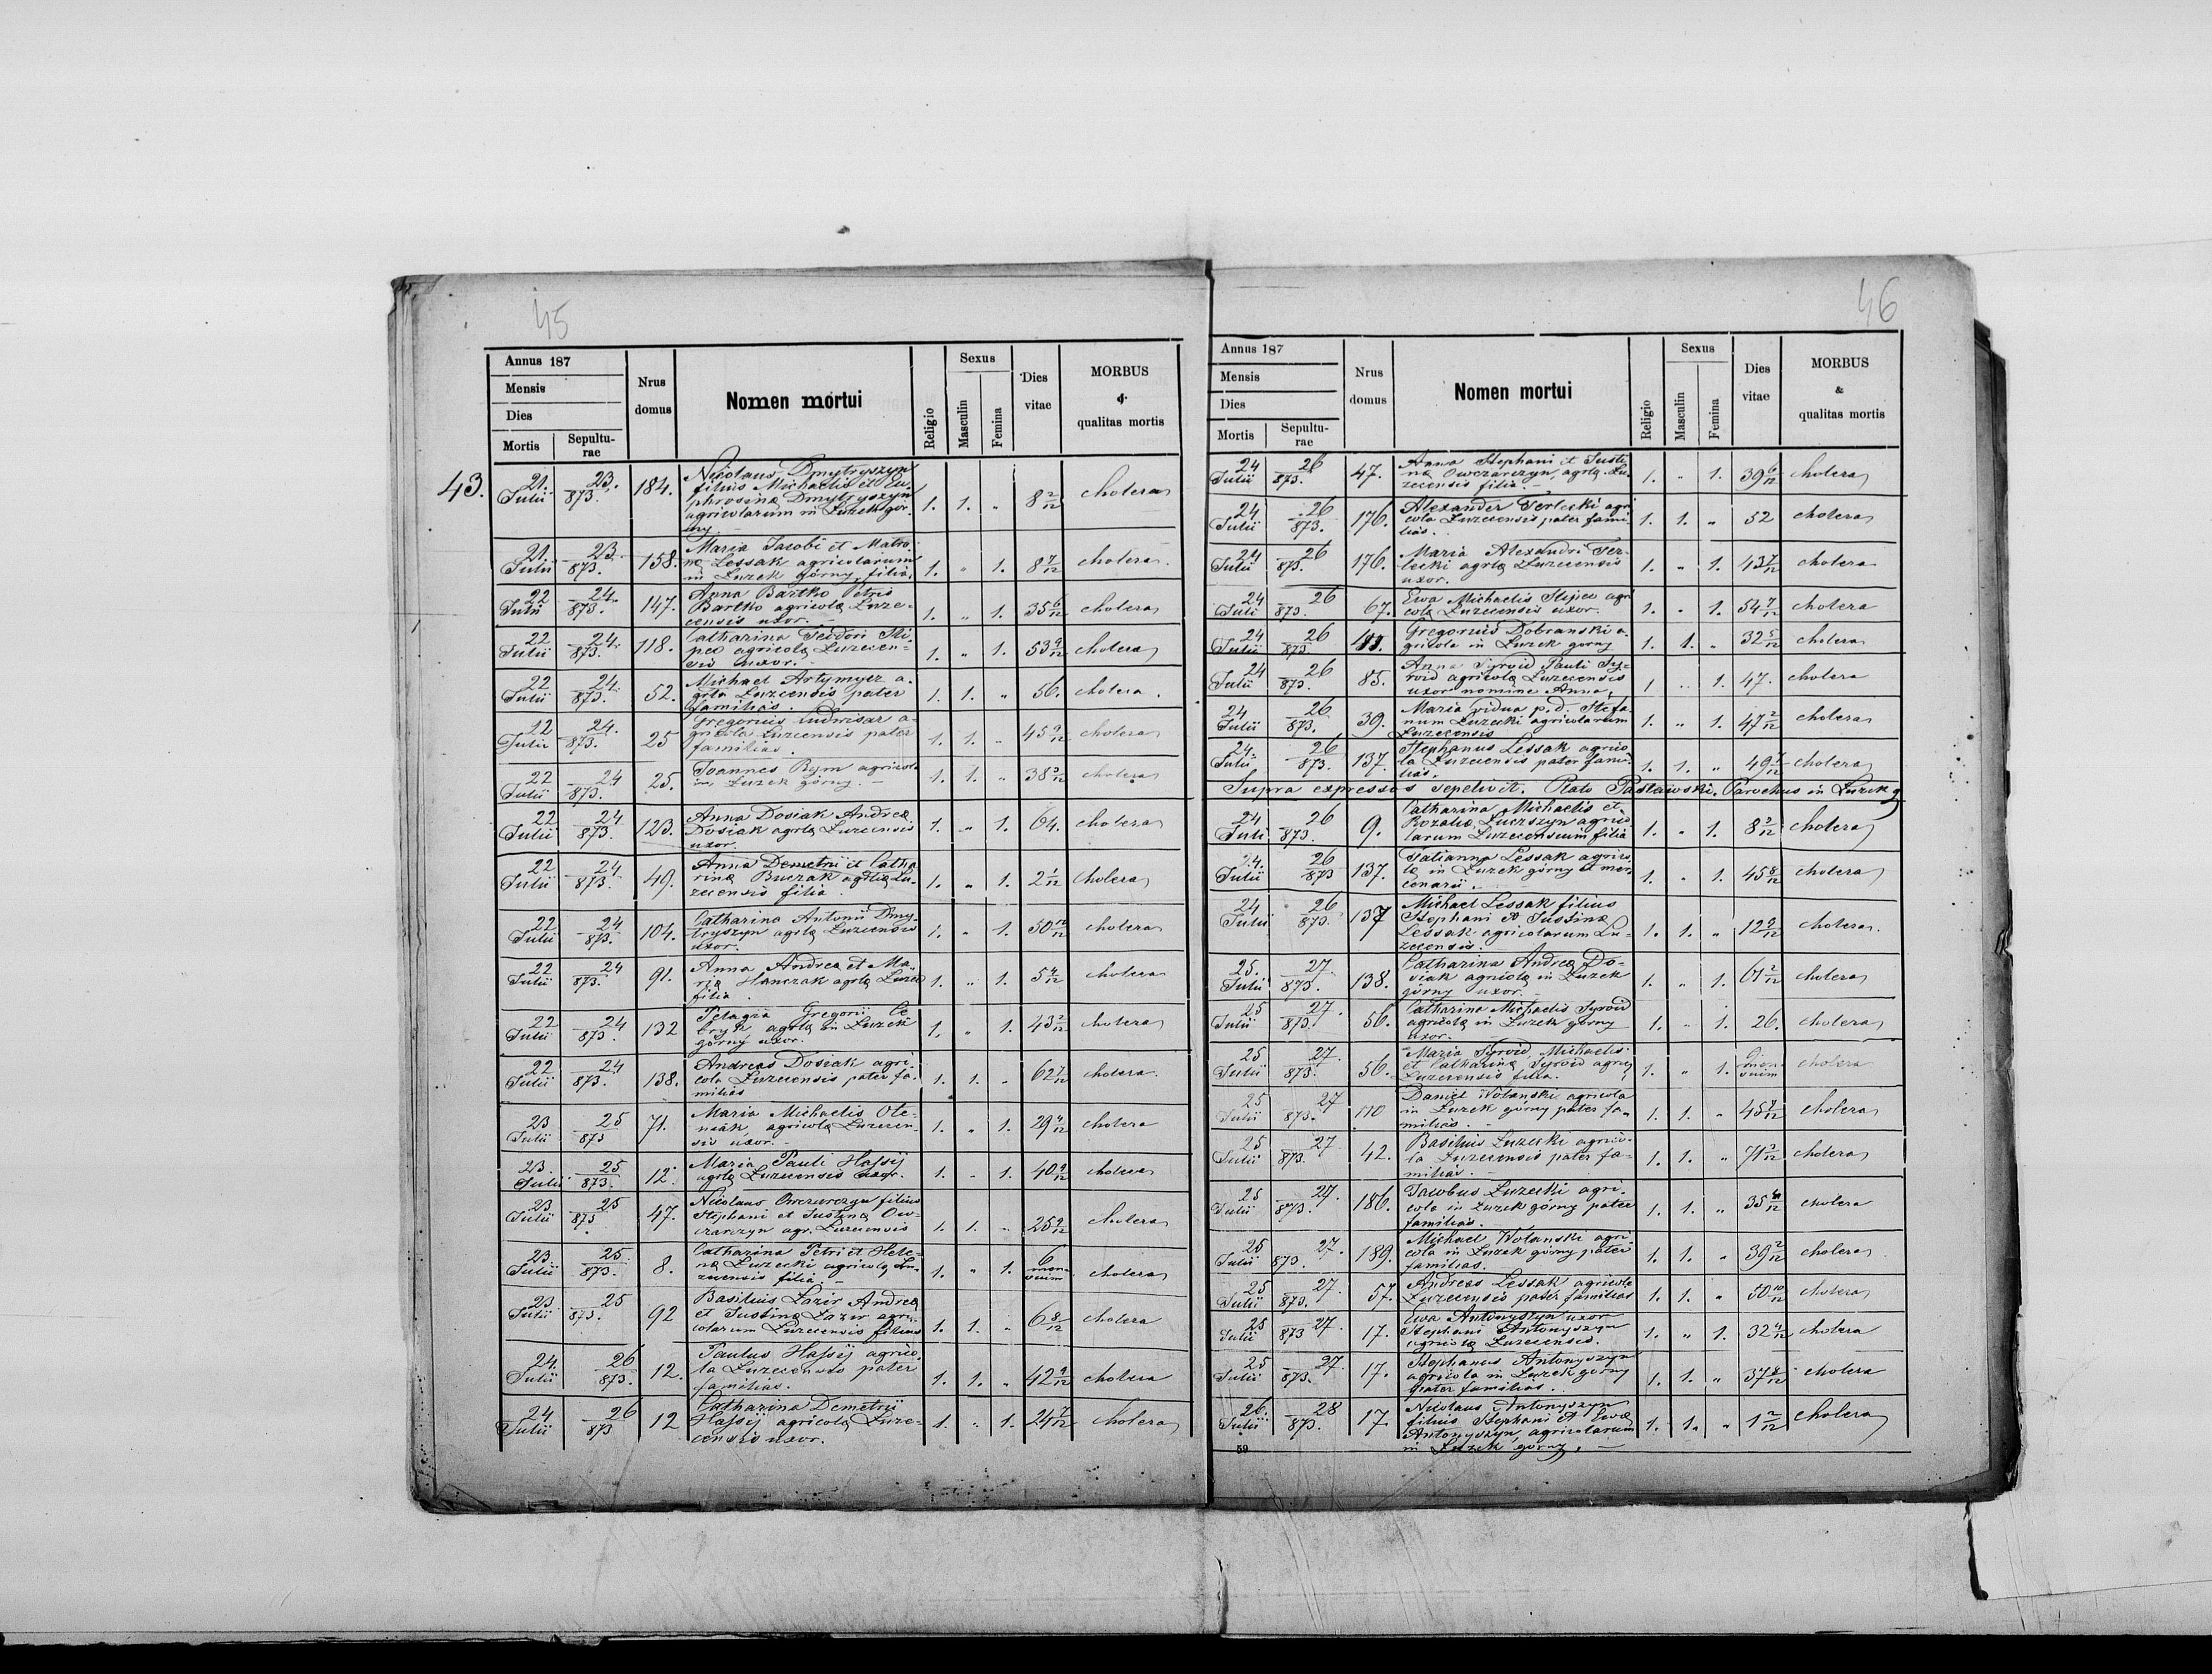 45
Annus 187
Mensis
Dies
Mortis Sepulturae
Nrus domus
Nomen mortui
Religio
Sexus
Masculin
Femina
Dies vitae
MORBUS & qualitas mortis
43.
21. Julii 23. 873. 184. Nicolaus Dmytryszyn
filius Michaelis et Eu-
phrosinę Dmytryszyn
agricolarum in Łużek gór-
ny 1. 1. " 8 2/12 cholera
21. Julii 23. 873. 158. Maria Jacobi et Matro-
nę Lessak agricolarum
in Łużek górny, filia. 1. " 1. 8 7/12 cholera.
22 Julii 24. 873. 147. Anna Bartko Petris
Bartko agricolę Łuże-
censis uxor. 1. " 1. 35 6/12 cholera
22 Julii 24. 873. 118. Catharina Teodori Sti-
pec agricolę Łużecen-
sis uxor. 1. " 1. 53 9/12 cholera
22 Julii 24. 873. 52. Michael Artymycz a-
grla Łużecensis pater
familias. 1. 1. " 56. cholera.
22 Julii 24. 873. 25 Gregorius Ludwisar a-
gricola Łużecensis pater
familias. 1. 1. " 45 9/12 cholera
22 Julii 24 873. 25. Joannes Rym agricola
in Łużek górny. 1. 1. " 38 3/12 cholera
22 Julii 24 873. 123. Anna Dosiak Andreę
Dosiak agrlę Łużecensis
uxor. 1. " 1. 64. cholera
22 Julii 24 873. 49. Anna Demetrii et Catha-
rinę Buczak agrlę Łu-
zecensis filia. 1. " 1. 2 1/12 cholera
22 Julii 24 873. 104. Catharina Antonii Dmy-
tryszyn agrlę Łużecensis
uxor. 1. " 1. 50 10/12 cholera
22 Julii 24 873. 91. Anna Andreę et Ma-
rię Hanczak agrlę Łużec
filia. 1. " 1. 5 4/12 cholera
22 Julii 24 873. 132 Pelagia Gregorii Ce-
bryk agrlę in Łużek
górny uxor. 1. " 1. 43 2/12 cholera
22 Julii 24 873. 138. Andreas Dosiak agri-
cola Łużecensis pater fa-
milias 1. 1. " 62 7/12 cholera.
23 Julii 25 873 71. Maria Michaelis Ole-
niak, agricolę Łużecen-
sis uxor. 1. " 1. 29 4/12 cholera
23. Julii 25 873. 12. Maria Pauli Hassij
agrlę Łużecensis uxor. 1. " 1. 40 9/12 cholera
23 Julii 25 873. 47. Nicolaus Owczarczyn filius
Stephani et Justinę Ow-
czarczyn agr. Łużecensis 1. 1. " 25 9/12 cholera
23. Julii 25. 873. 8. Catharina Petri et Hele-
nę Łużecki agricolę Łu-
zecensis filia. 1. " 1. 6 men-
sium cholera
23 Julii 25 873. 92 Basilius Łazir Andreę
et Justinę Łazir agri-
colarum Łużecensis filius 1. 1. " 6 8/12 cholera
24. Julii 26 873. 12. Paulus Hassij agrico-
la Łużecensis pater
familias. 1. 1. " 42 9/12 cholera
24 Julii 26 873 12 Catharina Demetrii
Hassij agricolę Łuże-
censis uxor. 1. " 1. 24 7/12 cholera
46
Annus 187
Mensis
Dies
Mortis Sepulturae
Nrus domus
Nomen mortui
Religio
Sexus
Masculin
Femina
Dies vitae
MORBUS & qualitas mortis
24 Julii 26 873. 47. Anna Stephani et Justi-
nę Owczarczyn, agrlę Łu-
zecensis filia. 1. " 1. 39 6/12 cholera
24 Julii 26 873. 176. Alexander Terlecki agri
cola Łużecensis pater fami-
lias. 1. 1. " 52 cholera
24 Julii 26 873. 176. Maria Alexandri Ter-
lecki agrlę Łużecensis
uxor. 1. " 1. 43 7/12 cholera
24 Juli 26 873. 67. Ewa Michaelis Stipec agri
colę Łużecensis uxor. 1. " 1. 54 7/12 cholera
24 Julii 26 873 Gregorius Dobranski a-
gricola in Łużek górny 1. 1. " 32 5/12 cholera
24 Julii 26 873. 85. Anna Syroid Pauli Sy-
roid agricolę Łużecensis
uxor nomine Anna, 1 " 1. 47. cholera
24 Julii 26 873. 39. Maria vidua p. d. Stefa-
num Łużecki agricolarum
Łużecensis 1. " 1. 47 2/12 cholera
24. Julii 26 873. 137. Stephanus Lessak agrico-
la Łużecensis pater fami-
lias. 1. 1. " 49 7/12 cholera
Supra expressos sepelivit. Plato Pasławski, Parochus in Łużek g
24 Juli 26 873. 9. Catharina Michaelis et
Rozalię Łuczszyn agrico
larum Łużecensium filia 1. " 1. 8 2/12 cholera
24. Julii 26 873 137. Tatianna Lessak agrico-
lę in Łużek górny et mer-
cenarii. 1. " 1. 45 8/12 cholera
24 Julii 26 873. 137 Michael Lessak filius
Stephani et Justinę
Lessak agricolarum Łu-
zecensis. 1. 1. " 12 9/12 cholera.
25. Julii 27 873. 138. Catharina Andreę Do-
siak agricolę in Łużek
górny uxor. 1. " 1. 61 2/12 cholera
25 Julii 27. 873. 56. Catharina Michaelis Syroid
agricolę in Łużek górny
uxor. 1. " 1. 26. cholera
25 Julii 27. 873. 56. Maria Syroid, Michaelis
et Catharinę Syroid agric
Łużecensis filia. 1. " 1. 9 men-
sium cholera
25 Julii 27 873. 110 Daniel Wolanski agricola
in Łużek górny pater fa-
milias. 1. 1. " 45 7/12 cholera
25 Julii 27 873. 42. Basilius Łużecki agrico-
la Łużecensis pater fa-
milias. 1. 1. " 71 2/12 cholera
25 Julii 27. 873. 186. Jacobus Łużecki agri-
cola in Łużek górny pater
familias. 1. 1. " 35 10/12 cholera
25 Julii 27. 873. 189. Michael Wolanski agri-
cola in Łużek górny pater
familias. 1. 1. " 39 2/12 cholera
25 Julii 27. 873. 57. Andreas Lessak agricola
Łużecensis pater familias 1. 1. " 50 10/12 cholera
25 Julii 27. 873 17. Ewa Antonyszyn uxor
Stephani Antonyszyn
agricolę Łużecensis. 1. " 1. 32 4/12 cholera
25 Julii 27. 873. 17. Stephanus Antonyszyn
agricola in Łużek górny
pater familias. 1. 1. " 37 8/12 cholera
26. Julii 28 873. 17. Nicolaus Antonyszyn
filius Stephani et Ewę
Antonyszyn, agricolarum
in Łużek górny. 1. 1. " 1 2/12 cholera
59